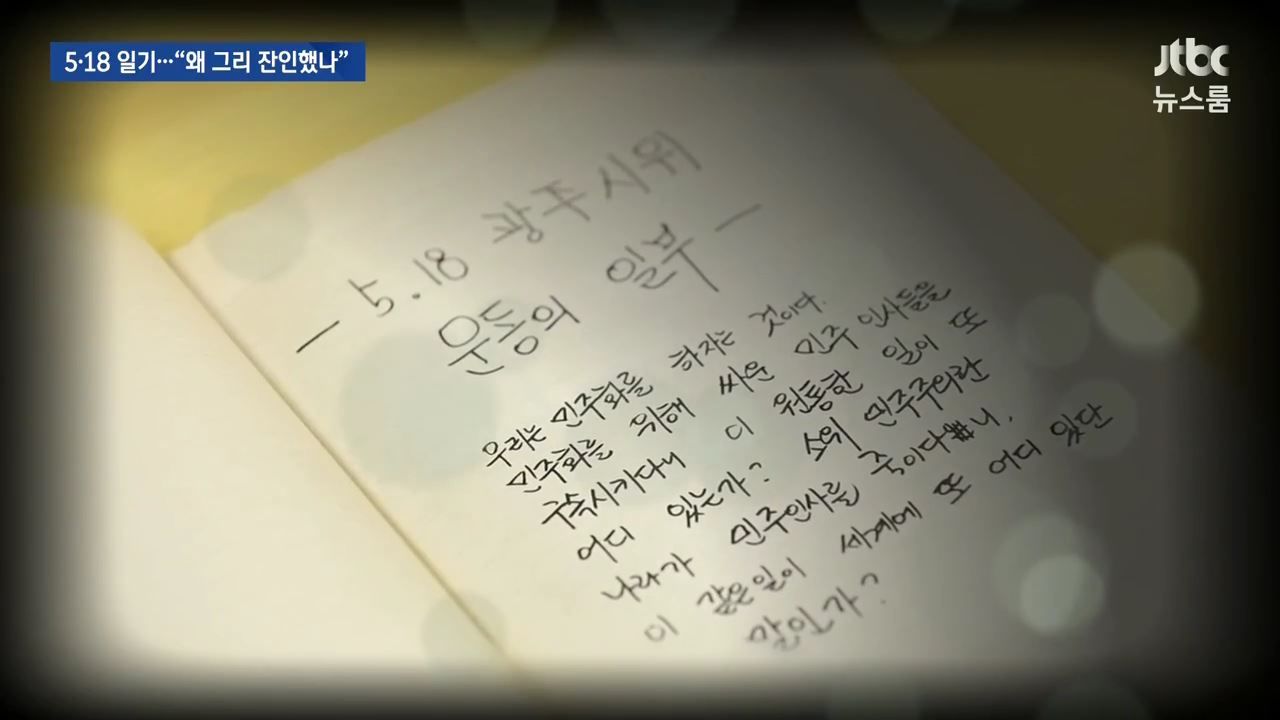 5·18 일기…“왜 그리 잔인했나”
jtbc
뉴스룸
— 5.18 광주시위
운동의 일부 —
우리는 민주화를 하자는 것이다.
민주화를 위해 싸운 민주 인사들을
구속시키다니 이 원통한 일이 또
어디 있는가? 소위 민주주의란
나라가 민주인사를 죽이다니.
이 같은일이 세계에 또 어디 있단
말인가?